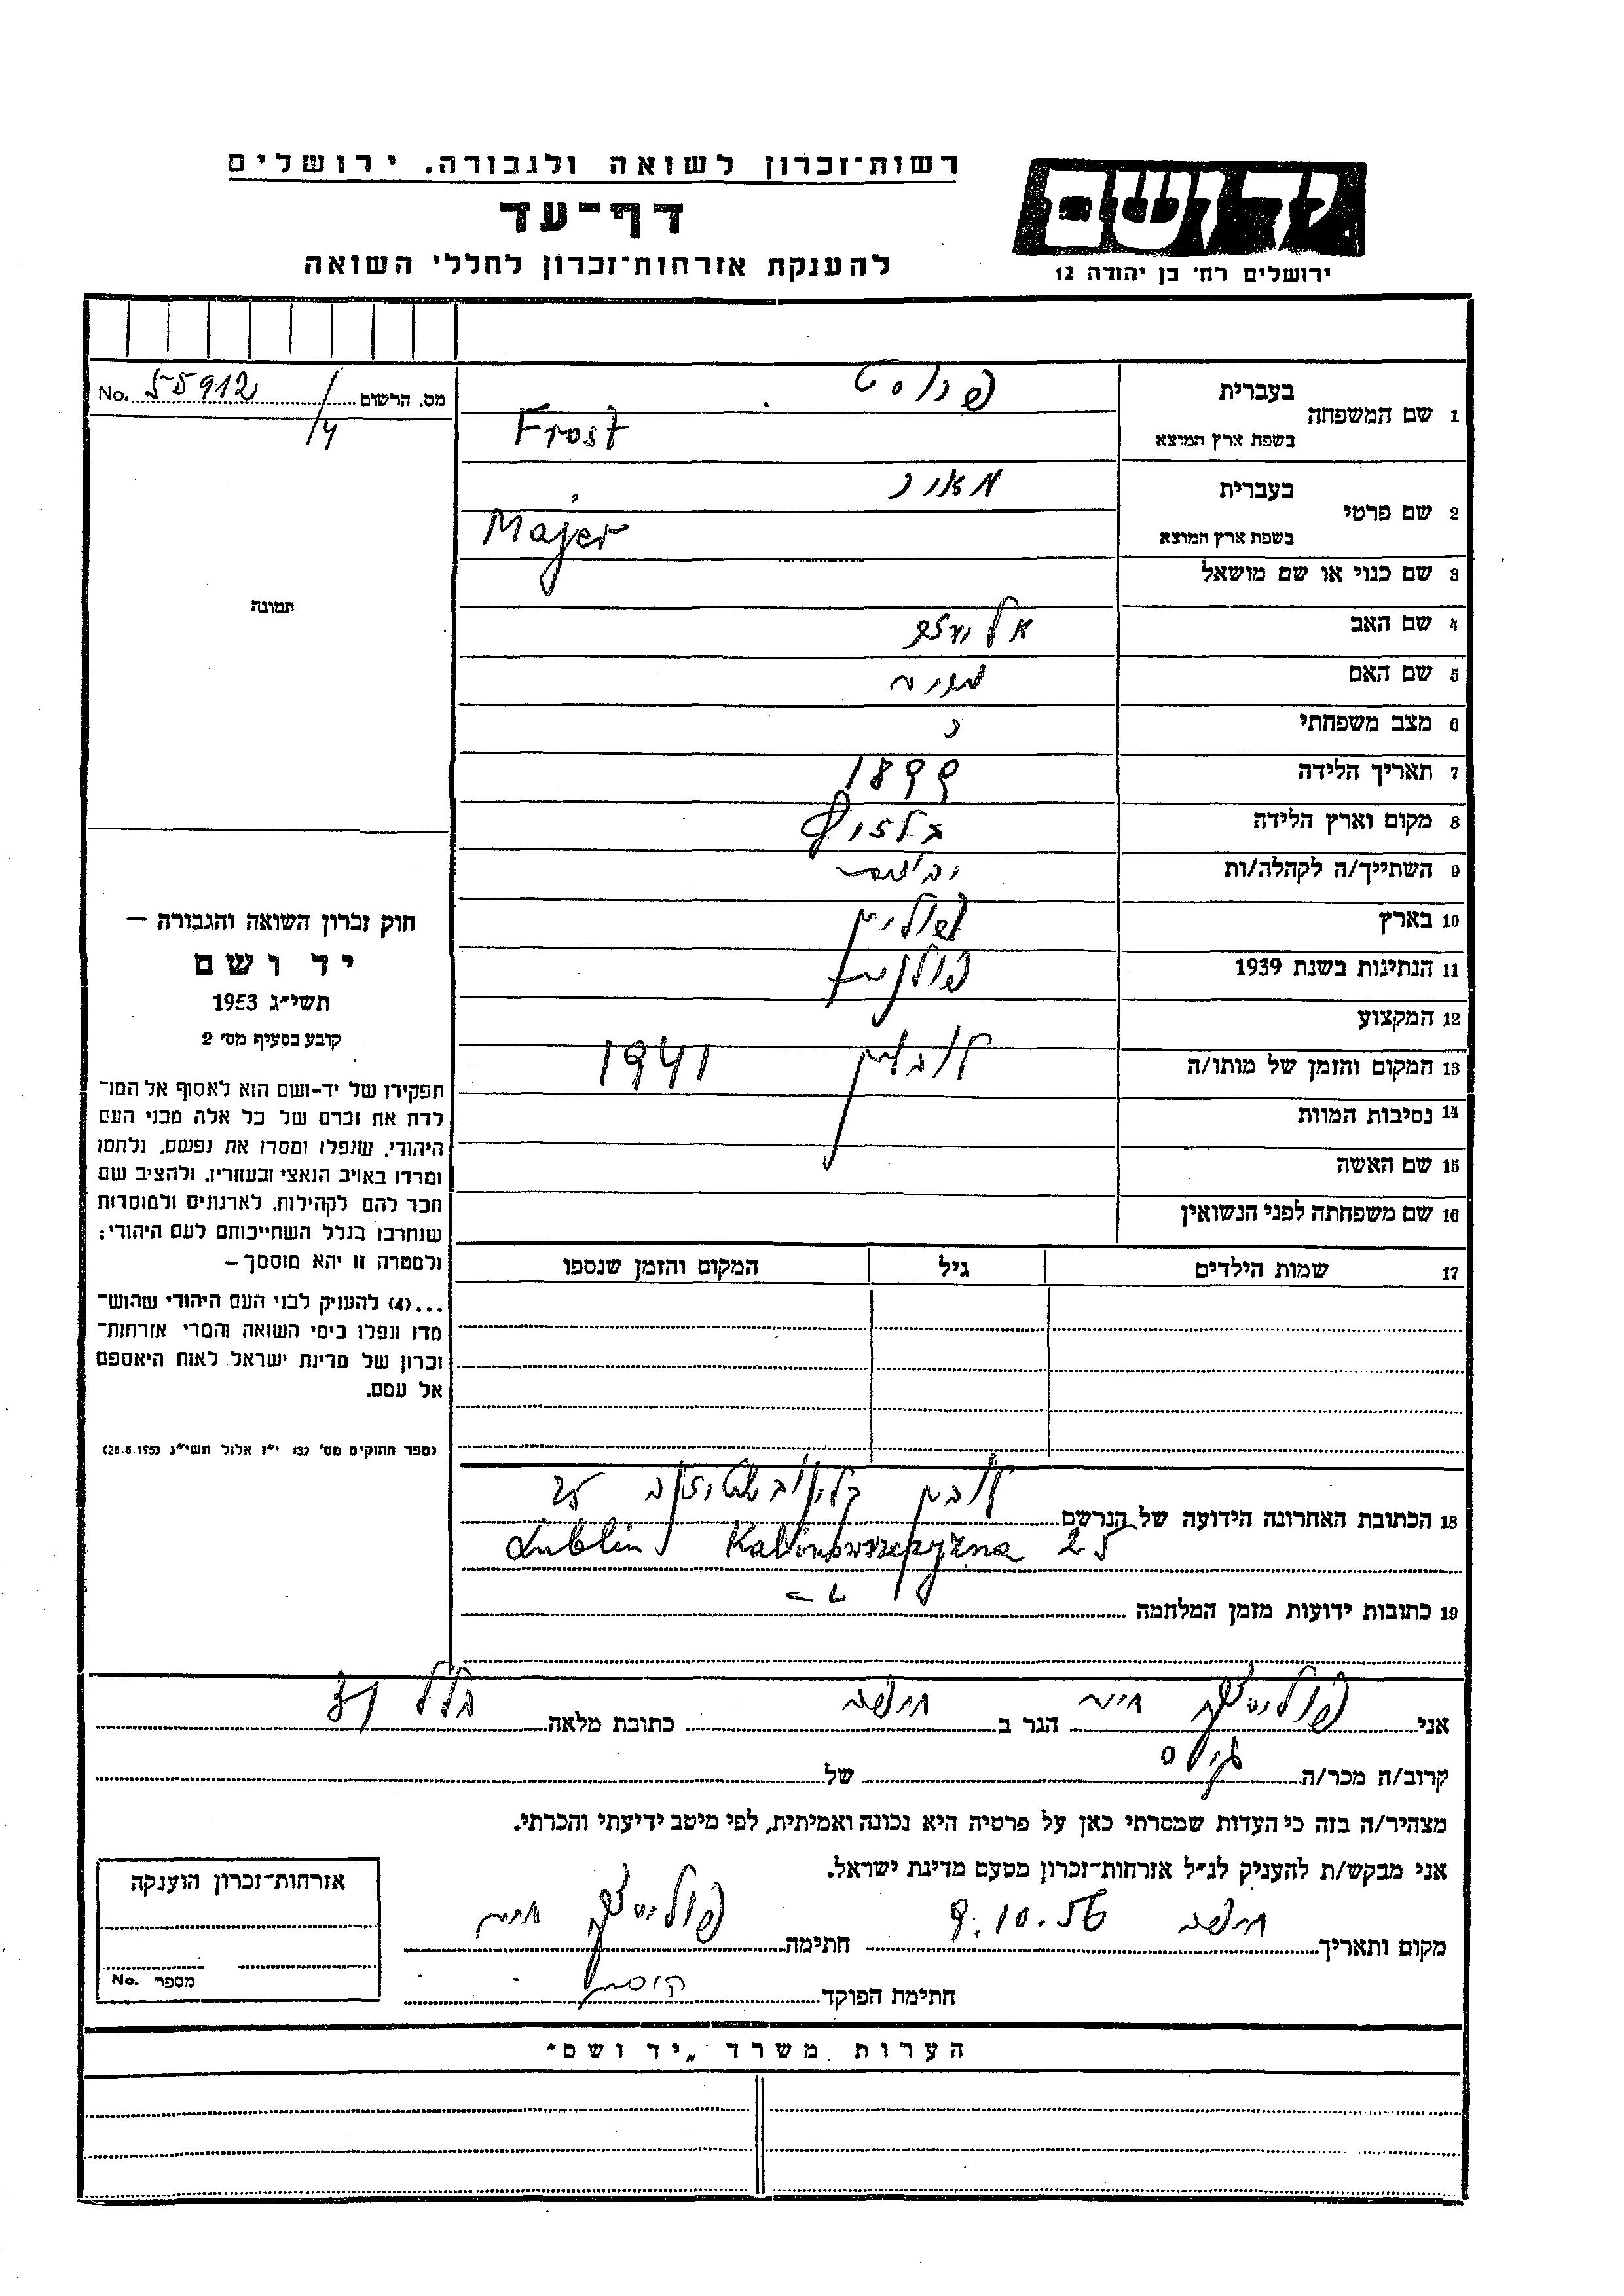 רשות־זכרון לשואה ולגבורה. ירושלים
דף־עד
להענקת אזרחות־זכרון לחללי השואה
יד ושם
ירושלים רח' בן יהודה 12
מס. הרשום No. 55912/4
תמונה
חוק זכרון השואה והגבורה —
יד ושם
תשי״ג 1953
קובע בסעיף מס' 2
תפקידו של יד-ושם הוא לאסוף אל המו־
לדת את זכרם של כל אלה מבני העם
היהודי, שנפלו ומסרו את נפשם, נלחמו
ומרדו באויב הנאצי ובעוזריו, ולהציב שם
וזכר להם לקהילות, לארגונים ולמוסדות
שנחרבו בגלל השתייכותם לעם היהודי;
ולמטרה זו יהא מוסמך —
...(4) להעניק לבני העם היהודי שהוש־
מדו ונפלו בימי השואה והמרי אזרחות־
זכרון של מדינת ישראל לאות היאספם
אל עמם.
(ספר החוקים מס' 132 י״ז אלול תשי״ג 28.8.1953)
1 שם המשפחה בעברית פרוסט
בשפת ארץ המוצא Frost
2 שם פרטי בעברית מאיר
בשפת ארץ המוצא Majer
3 שם כנוי או שם מושאל
4 שם האב
5 שם האם
6 מצב משפחתי
7 תאריך הלידה 1899
8 מקום וארץ הלידה
9 השתייך/ה לקהלה/ות
10 בארץ פולין
11 הנתינות בשנת 1939 פולנית
12 המקצוע
13 המקום והזמן של מותו/ה לובלין 1941
14 נסיבות המוות
15 שם האשה
16 שם משפחתה לפני הנשואין
17 שמות הילדים גיל המקום והזמן שנספו
18 הכתובת האחרונה הידועה של הנרשם לובלין 25
Lublin Kalinowszczyzna 25
19 כתובות ידועות מזמן המלחמה
אני חיים הגר ב חיפה כתובת מלאה
קרוב/ה מכר/ה גיס של
מצהיר/ה בזה כי העדות שמסרתי כאן על פרטיה היא נכונה ואמיתית, לפי מיטב ידיעתי והכרתי.
אני מבקש/ת להעניק לנ״ל אזרחות־זכרון מטעם מדינת ישראל.
מקום ותאריך חיפה 9.10.56 חתימה חיים
חתימת הפוקד
אזרחות־זכרון הוענקה
מספר No.
הערות משרד „יד ושם״